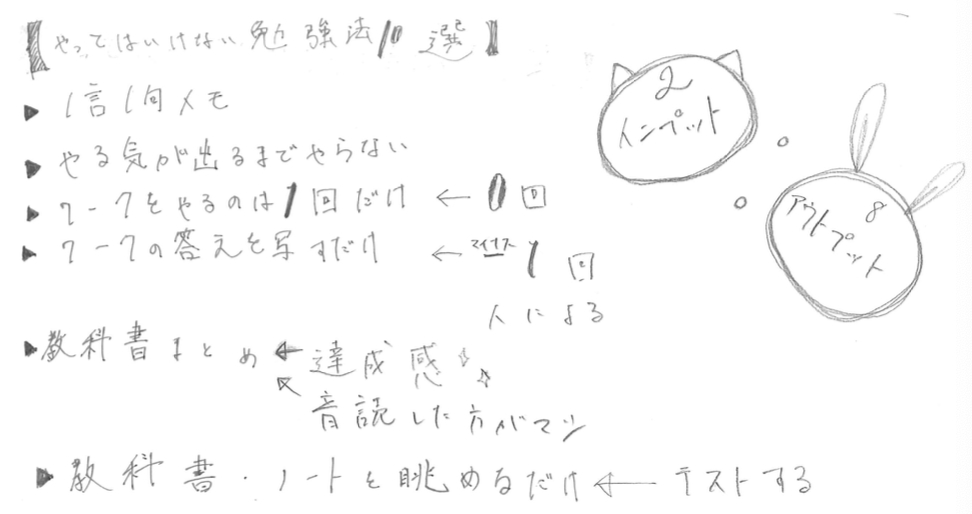 【やってはいけない勉強法10選】
▶ 1言1句メモ
▶ やる気が出るまでやらない
▶ ワークをやるのは1回だけ ← 0回
▶ ワークの答えを写すだけ ← マイナス 1回
人による
▶ 教科書まとめ ← 達成感
音読した方がマシ
▶ 教科書・ノートを眺めるだけ ← テストする
2
インプット
8
アウトプット